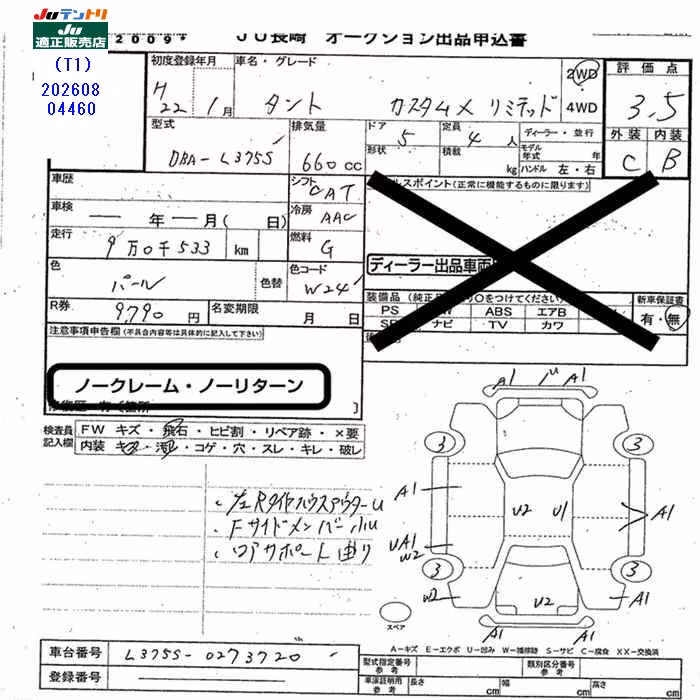 JUテントリ
JU適正販売店
2009* JU長崎 オークション出品申込書
(T1)
202608
04460
初度登録年月 車名・グレード 2WD 評価点
H22年1月 タント カスタムX リミテッド 4WD 3.5
型式 排気量 ドア 5 定員 4人 ディーラー・並行 外装 内装
DBA-L375S 660cc 形状 積載 kg モデル年式 年 ハンドル 左・右 C B
車歴 シフト CAT スポイント(正常に機能するものに限ります)
車検 ― 年 ― 月( 日) 冷房 AAC
走行 9万0千533 km 燃料 G ディーラー出品車両
色 パール 色替 色コード W24
R券 9,790円 名変期限 月 日 装備品(純正 〇をつけてください) 新車保証書
PS W ABS エアB 有・無
ナビ TV カワ
注意事項申告欄(不具合内容等は具体的に記入して下さい)
ノークレーム・ノーリターン
検査員記入欄 FW キズ・飛石・ヒビ割・リペア跡・×要
内装 キズ・汚レ・コゲ・穴・スレ・キレ・破レ
・左Rタイヤハウスアウターu
・Fサイドメンバー小u
・コアサポート曲り
A1 u A1
3 3
A1 U2 U1 A1
UA1
W2
3 3
W2 U2 A1
A1 A1
スペア
A-キズ E-エクボ U-凹み W-補修跡 S-サビ C-腐食 XX-交換済
車台番号 L375S-0273720
登録番号
型式指定番号 参考 類別区分番号 参考
車庫証明用 参考 長さ cm 幅 cm 高さ cm